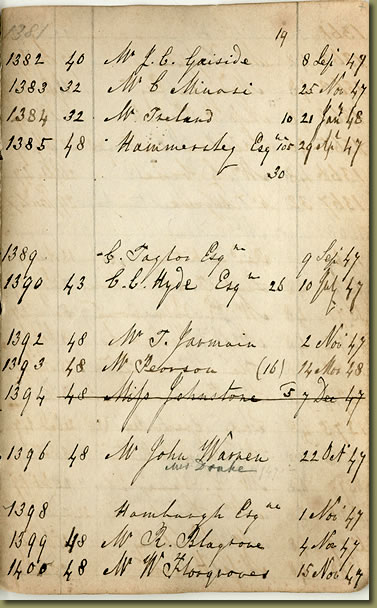 19
1382 40 Mr J. C. Gaiside 8 Sep 47
1383 32 Mr C Minasi 25 Nov 47
1384 32 Mr Ireland 10 21 Jany 48
1385 48 Hammersley Esqre 105 29 47
30
1389 C. Taylor Esqre 9 Sep 47
1390 43 C. C. Hyde Esqre 26 10 July 47
1392 48 Mr T. Jarmain 2 Nov 47
1393 48 Mr Pearson (16) 14 Mar 48
1394 48 Miss Johnstone 5 7 Dec 47
1396 48 Mr John Warren 22 Oct 47
Mr Drake
1398 Hamburgh Esqre 1 Nov 47
1399 48 Mr R. Blagrove 4 Nov 47
1400 48 Mr W Hosgroves 15 Nov 47